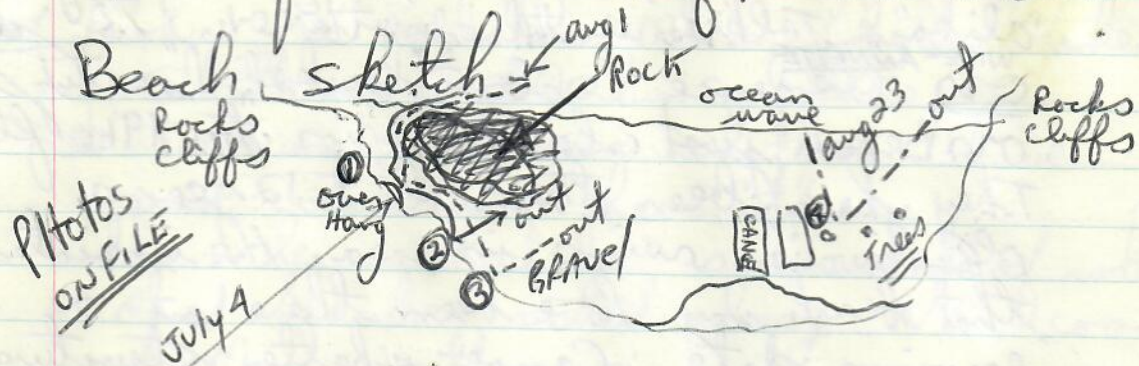 Beach Sketch
aug 1
Rock
ocean
wave
aug 23
out
Rocks
Cliffs
Rocks
Cliffs
①
over
Hang
②
out
out
③
GRAVEl
CANE
④
Trees
PHotos
ON FILE
July 4